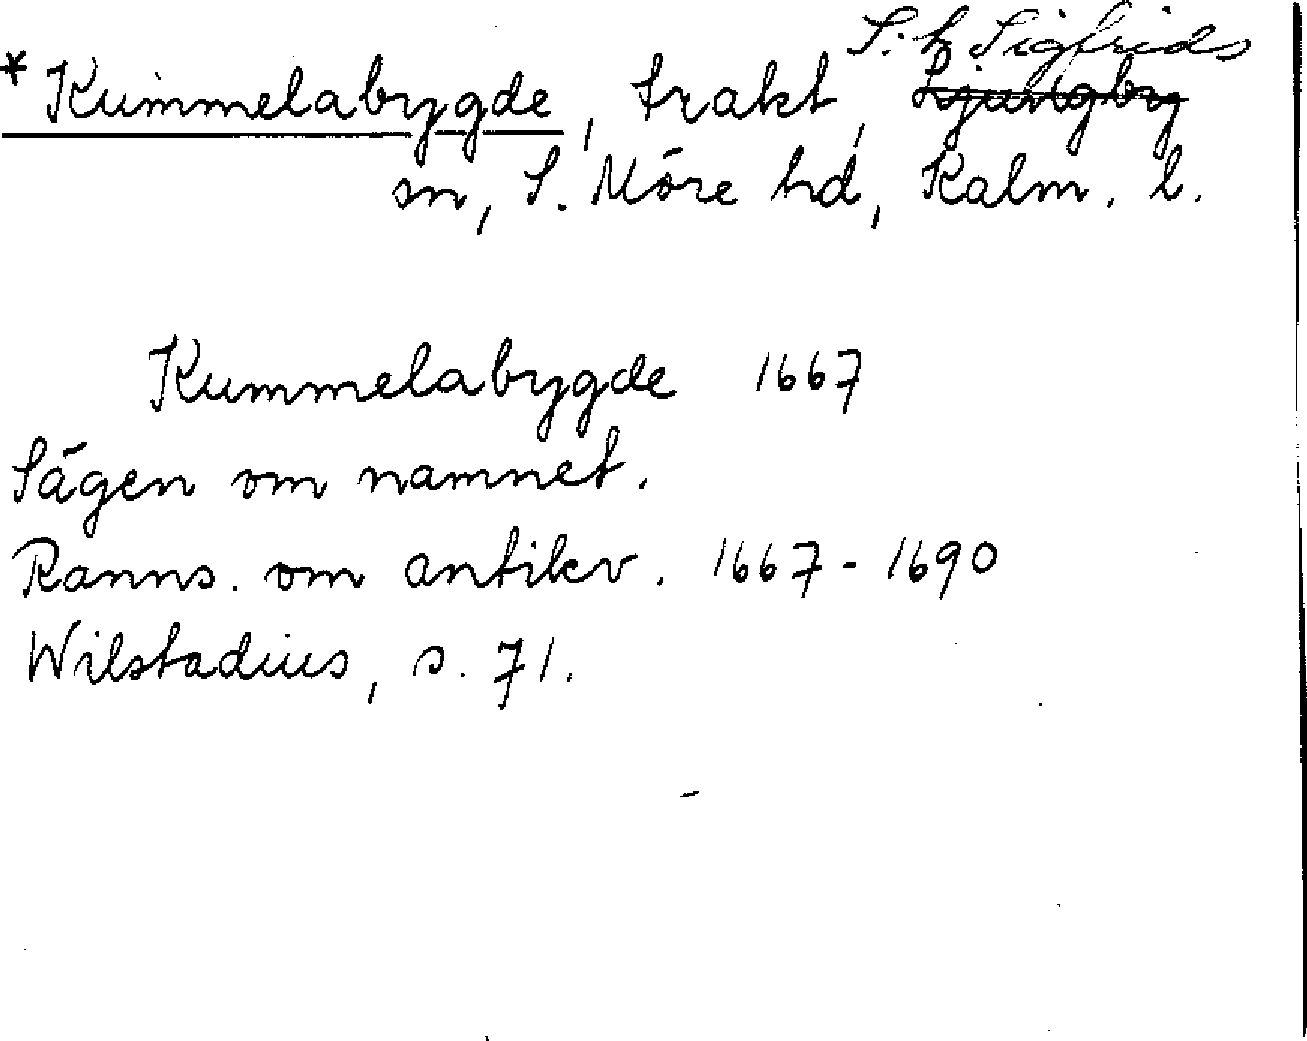 S:t Sigfrids
* Kummelabygde, trakt, Ljungby
sn, S. Möre hd, Kalm. l.
Kummelabygde 1667
Sägen om namnet.
Ranns. om antikv. 1667-1690
Wilstadius, s. 71.